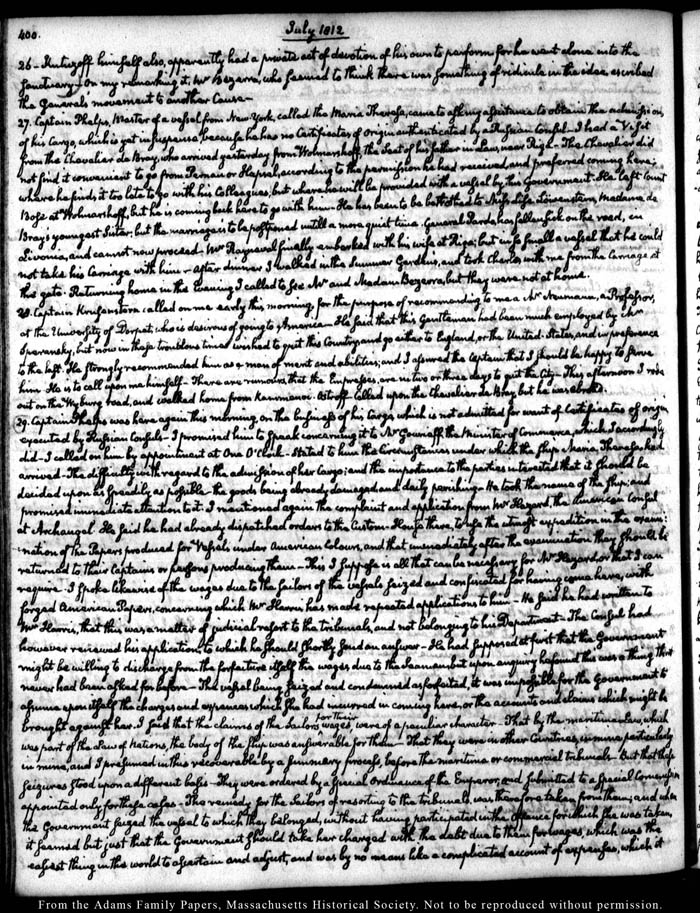 400.
July 1812
26 - Kutuzoff himself also, apparently had a private act of devotion of his own to perform for he went alone into the
Sanctuary - On my remarking it, Mr Bezerra, who seemed to think there was something of ridicule in the idea, ascribed
the Generals movement to another Cause -
27. Captain Phelps, Master of a vessel from New York, called the Maria Theresa, came to ask my assistance to obtain the admission,
of his Cargo, which is yet in suspense because he has no Certificates of origin authenticated by a Russian Consul - I had a Visit
from the Chevalier de Bray, who arrived yesterday from Wolmarshoff, the Seat of his father in Law, near Riga - The Chevalier did
not find it convenient to go from Pernau or Hapsal, according to the permission he had received, and preferred coming here;
where he finds it too late to go with his Colleagues, but where he will be provided with a vessel by this Government. He left Count
Bose at Wolmarshoff, but he is coming back here to go with him - He has been to be betrothed to Miss Lise Löwenstern, Madame de
Bray's youngest Sister; but the marriage is to be postponed untill a more quiet time. General Pardo has fallen sick on the road, in
Livonia, and cannot now proceed - Mr Rayneval finally embarked with his wife at Riga; but in so small a vessel that he could
not take his Carriage with him - After dinner I walked in the Summer Gardens, and took Charles with me from the Carriage at
the gate. Returning home in the Evening I called to see Mr and Madam Bezerra, but they were not at home.
28. Captain Krusenstern called on me early this morning, for the purpose of recommending to me a Mr Neumann, a Professor,
at the University of Dorpat, who is desirous of going to America - He said that this Gentleman had been much employed by Mr
Speransky, but now in these troublous times wished to quit this Country and go either to England, or the United States, and in preference
to the last. He strongly recommended him as a man of merit and abilities; and I assured the Captain that I should be happy to serve
him. He is to call upon me himself - There are rumours that the Empresses, are in two or three days to quit the City - This afternoon I rode
out on the Wyburg road, and walked home from Kammenoi-Ostroff. Called upon the Chevalier de Bray but he was abroad.
29. Captain Phelps was here again this morning, on the business of his Cargo which is not admitted for want of Certificates of origin
executed by Russian Consuls - I promised him to speak concerning it to Mr Gourieff, the Minister of Commerce, which I accordingly
did - I called on him by appointment at One O'Clock - Stated to him the Circumstances under which the Ship Maria Theresa had
arrived - The difficulty with regard to the admission of her Cargo; and the importance to the parties interested that it should be
decided upon as speedily as possible - the goods being already damaged and daily perishing - He took the name of the Ship; and
promised immediate attention to it - I mentioned again the complaint and application from Mr Hazard, the American Consul
at Archangel. He said he had already dispatched orders to the Custom-House there, to use the utmost expedition in the exami-
nation of the Papers produced for Vessels under American Colours, and that immediately after the examination they should be
returned to their Captains or persons producing them - This I suppose is all that can be necessary for Mr Hazard or that I can
require - I spoke likewise of the wages due to the Sailors of the vessels seized and confiscated for having come here, with
forged American Papers, concerning which Mr Harris has made repeated applications to him - He said he had written to
Mr Harris, that this was a matter of judicial resort to the tribunals, and not belonging to his Department - The Consul had
however renewed his application, to which he should shortly send an answer - He had supposed at first that the Government
might be willing to discharge from the forfeiture itself the wages due to the seamen, but upon enquiry he found this was a thing that
never had been asked for before - The vessel being seized and condemned as forfeited, it was impossible for the Government to
assume upon itself the charges and expences which she had incurred in coming here, or the accounts and claims which might be
brought against her. I said that the claims of the Sailors for their wages, were of a peculiar character - That by the maritime law, which
was part of the Law of Nations, the body of the Ship was answerable for them - That they were in other Countries, in mine particularly
in mine, and I presumed in this recoverable by a summary process, before the maritime or commercial tribunals - But that these
Seizures stood upon a different basis - They were ordered by a Special Ordinance of the Emperor, and submitted to a Special Commission
appointed only for these cases - The remedy for the Sailors of resorting to the tribunals, was therefore taken from them; and when
the Government seized the vessel to which they belonged, without having participated in the offence for which she was taken,
it seemed but just that the Government should take her charged with the debt due to them for wages, which was the
easiest thing in the world to ascertain and adjust, and was by no means like a complicated account of expenses, which it
From the Adams Family Papers, Massachusetts Historical Society. Not to be reproduced without permission.